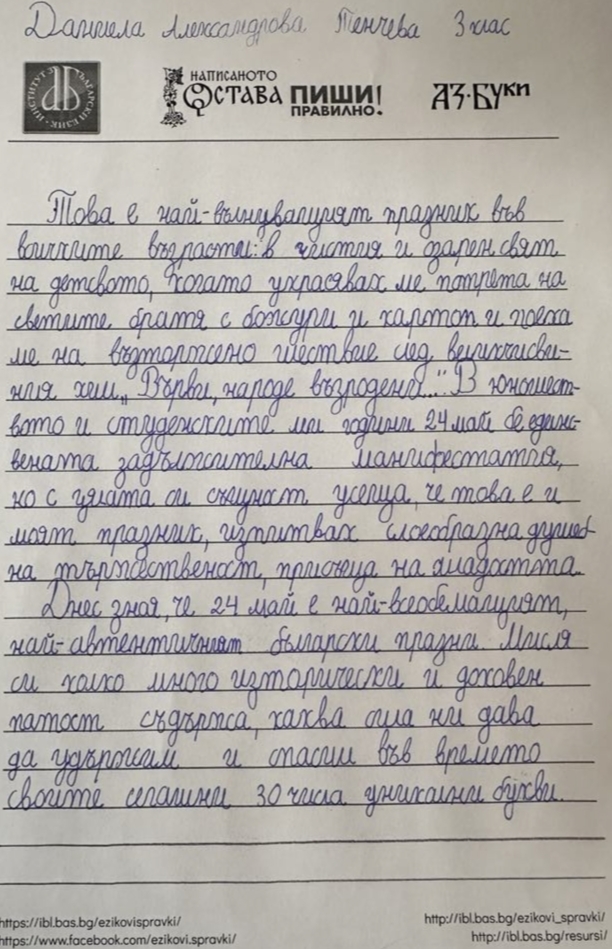 Даниела Александрова Тенчева 3 клас
ИНСТИТУТ ЗА БЪЛГАРСКИ ЕЗИК
НАПИСАНОТО
ОСТАВА ПИШИ!
ПРАВИЛНО.
АЗ·БУКИ
Това е най-вълнуващият празник във
всичките възрасти: в чистия и озарен свят
на детсвото, когато украсявах ме потрета на
светите братя с божури и картон и поеха
ме на възторжено шествие след величъсве-
ния хим „Върви, народе възродени...". В юношест-
вото и студенските ми години 24 май бе единс-
вената задължителна манифестатия,
но с цялата си същност усеща, че това е и
моят празник, изпитвах своеобразна душев
на тържественост, присъща на младостта.
Днес зная, че 24 май е най-всеобемащият,
най-автентичният български празни. Мисля
си колко много изторически и доховен
патост съдържа, каква сила ни дава
да удържим и спасим във времето
своите сегашни 30 числа уникални букви.
https://ibl.bas.bg/ezikovispravki/
http://ibl.bas.bg/ezikovi_spravki/
https://www.facebook.com/ezikovi.spravki/
http://ibl.bas.bg/resursi/